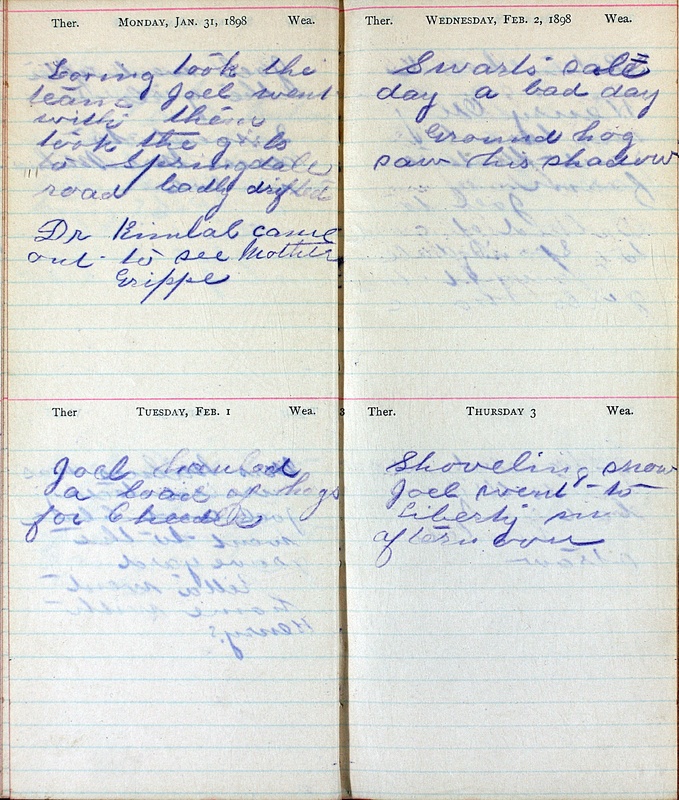 Ther. MONDAY, JAN. 31, 1898 Wea.
Loring took the
team Joel went
with them
took the g ls
o Springdale
road badly drifted
Dr Kimbal came
out to see Mother
Grippe
Ther TUESDAY, FEB. 1 Wea.
Joel hauled
a load of hogs
for
Ther. WEDNESDAY, FEB. 2, 1898 Wea.
Swarts sale
day a bad day
Ground hog
saw his shadow
3 Ther. THURSDAY 3 Wea.
Shoveling snow
Joel went to
Liberty in
afternoon